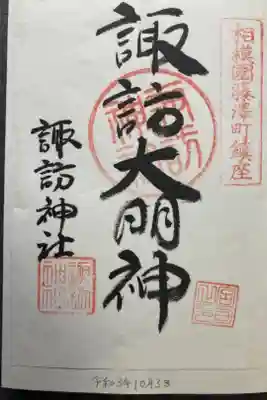 相模國藤澤町鎮座
諏訪大明神
諏訪神社
令和3年10月3日